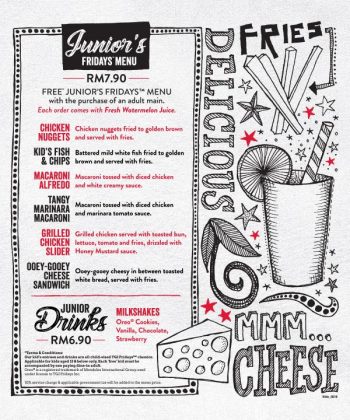 Junior's
FRIDAYS™ MENU
RM7.90
FREE* JUNIOR'S FRIDAYS™ MENU
with the purchase of an adult main.
Each order comes with Fresh Watermelon Juice.
CHICKEN NUGGETS
Chicken nuggets fried to golden brown
and served with fries.
KID'S FISH & CHIPS
Battered mild white fish fried to golden
brown and served with fries.
MACARONI ALFREDO
Macaroni tossed with diced chicken
and white creamy sauce.
TANGY MARINARA MACARONI
Macaroni tossed with diced chicken
and marinara tomato sauce.
GRILLED CHICKEN SLIDER
Grilled chicken served with toasted bun,
lettuce, tomato and fries, drizzled with
Honey Mustard sauce.
OOEY-GOOEY CHEESE SANDWICH
Ooey-gooey cheese in between toasted
white bread, served with fries.
JUNIOR
Drinks
RM6.90
MILKSHAKES
Oreo® Cookies,
Vanilla, Chocolate,
Strawberry
*Terms & Conditions:
FRIES
DELICIOUS
MMM...
CHEESE